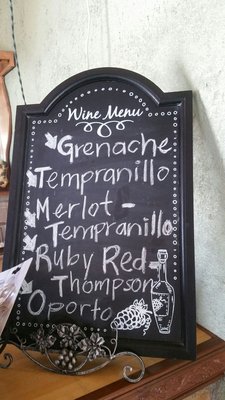 Wine Menu
Grenache
Tempranillo
Merlot -
Tempranillo
Ruby Red-
Thompson
Oporto